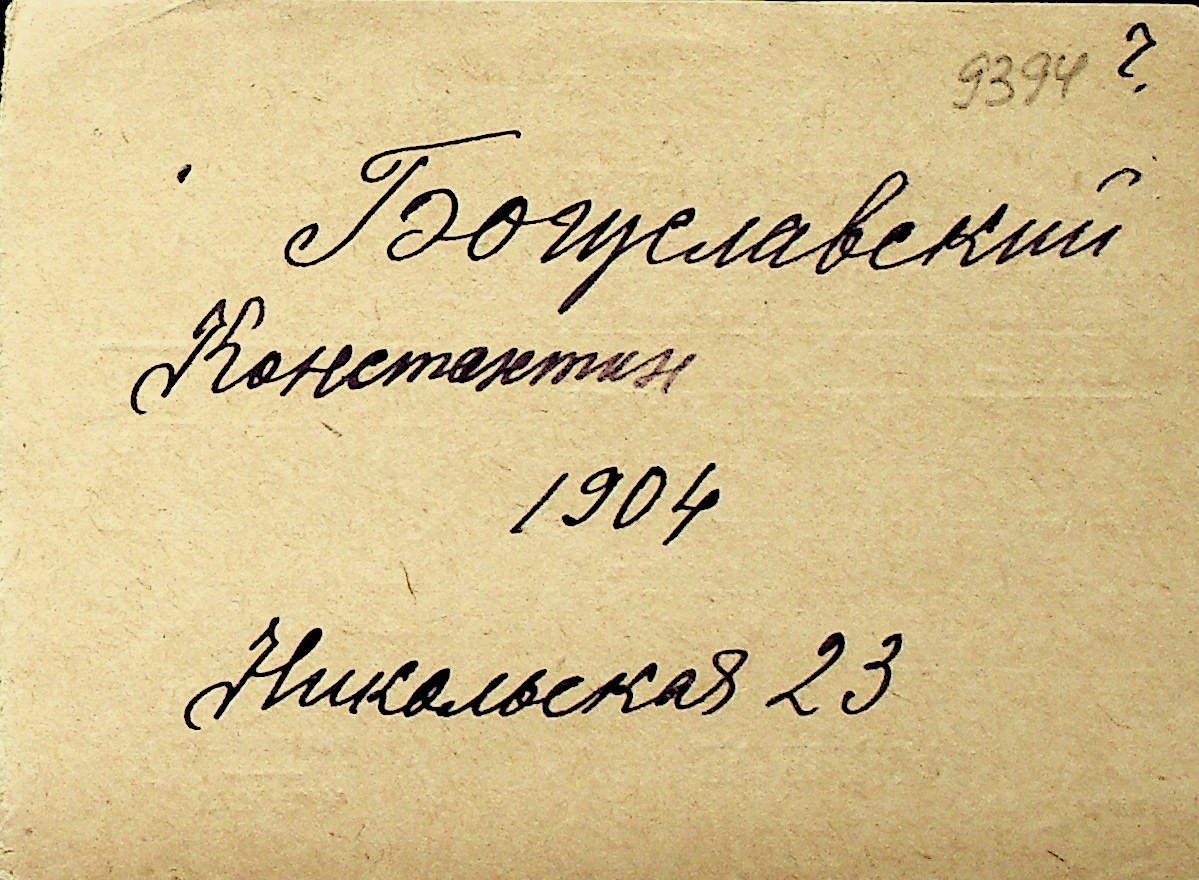 9394 ?
Богуславский
Константин
1904
Никольская 23